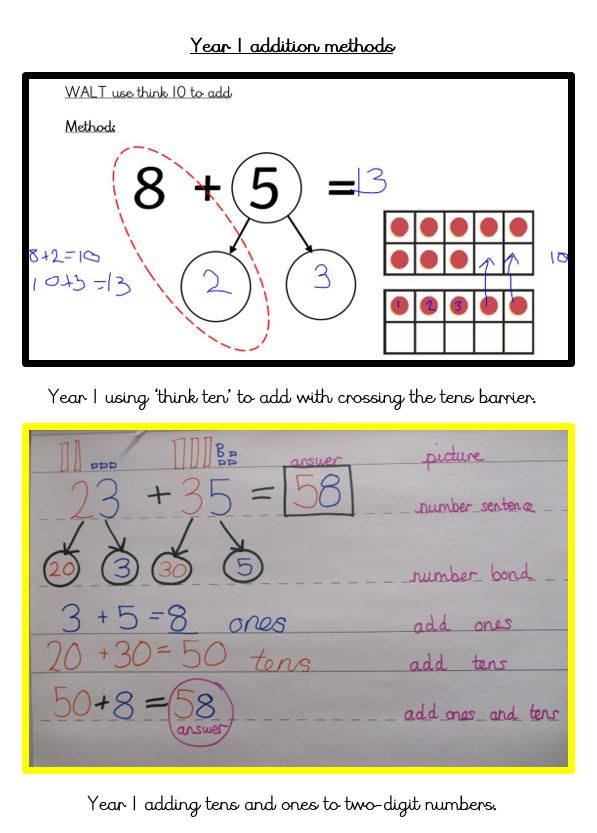 Year 1 addition methods
WALT use think 10 to add
Method:
8 + 5 = 13
8+2=10
10+3=13
2 3
10
1 2 3
Year 1 using ‘think ten’ to add with crossing the tens barrier.
answer picture
23 + 35 = 58 number sentence
20 3 30 5 number bond
3 + 5 = 8 ones add ones
20 + 30 = 50 tens add tens
50 + 8 = 58 add ones and tens
answer
Year 1 adding tens and ones to two-digit numbers.